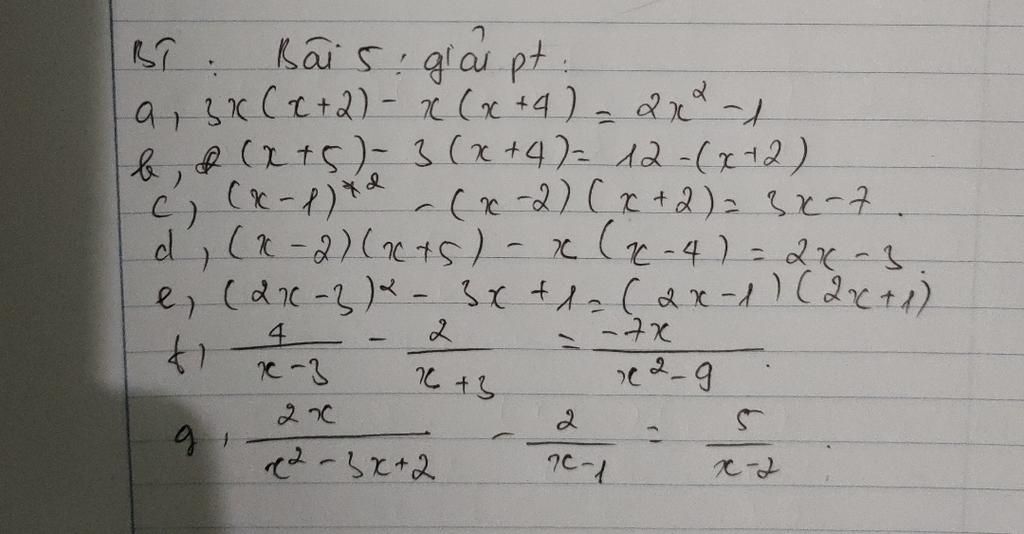 BT : Bài 5 : giải pt :
a, 3x(x+2) - x(x+4) = 2x² - 1
b, (x+5) - 3(x+4) = 12 - (x+2)
c, (x-1)² - (x-2)(x+2) = 3x-7.
d, (x-2)(x+5) - x(x-4) = 2x-3.
e, (2x-3)² - 3x + 1 = (2x-1)(2x+1)
f, 4/(x-3) - 2/(x+3) = -7x/(x²-9).
g, 2x/(x²-3x+2) - 2/(x-1) = 5/(x-2).